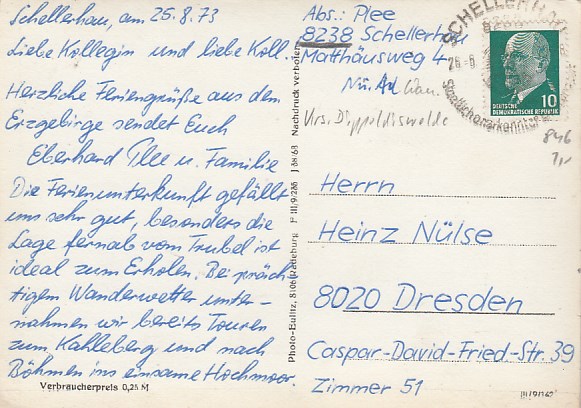 Schellerhau, am, 25.8.73
Liebe Kollegin und liebe Koll.
Herzliche Feriengrüße aus dem
Erzgebirge sendet Euch
Eberhard Plee u. Familie
Die Ferienunterkunft gefällt
uns sehr gut, besonders die
Lage fernab vom Trubel ist
ideal zum Erholen. Bei präch
tigem Wanderwetter unter-
nahmen wir bereits Touren
zum Kahleberg und nach
Böhmen ins einsame Hochmoor.
Verbraucherpreis 0,25 M
Photo-Eulitz, 8106 Radeburg F III/9/286 J 88/68 Nachdruck verboten
Abs.: Plee
8238 Schellerhau
Matthäusweg 4
Krs. Dippoldiswalde
SCHELLERHAU
8238
Staatlich anerkannter
DEUTSCHE
DEMOKRATISCHE REPUBLIK
10
846
Herrn
Heinz Nülse
8020 Dresden
Caspar-David-Fried.-Str. 39
Zimmer 51